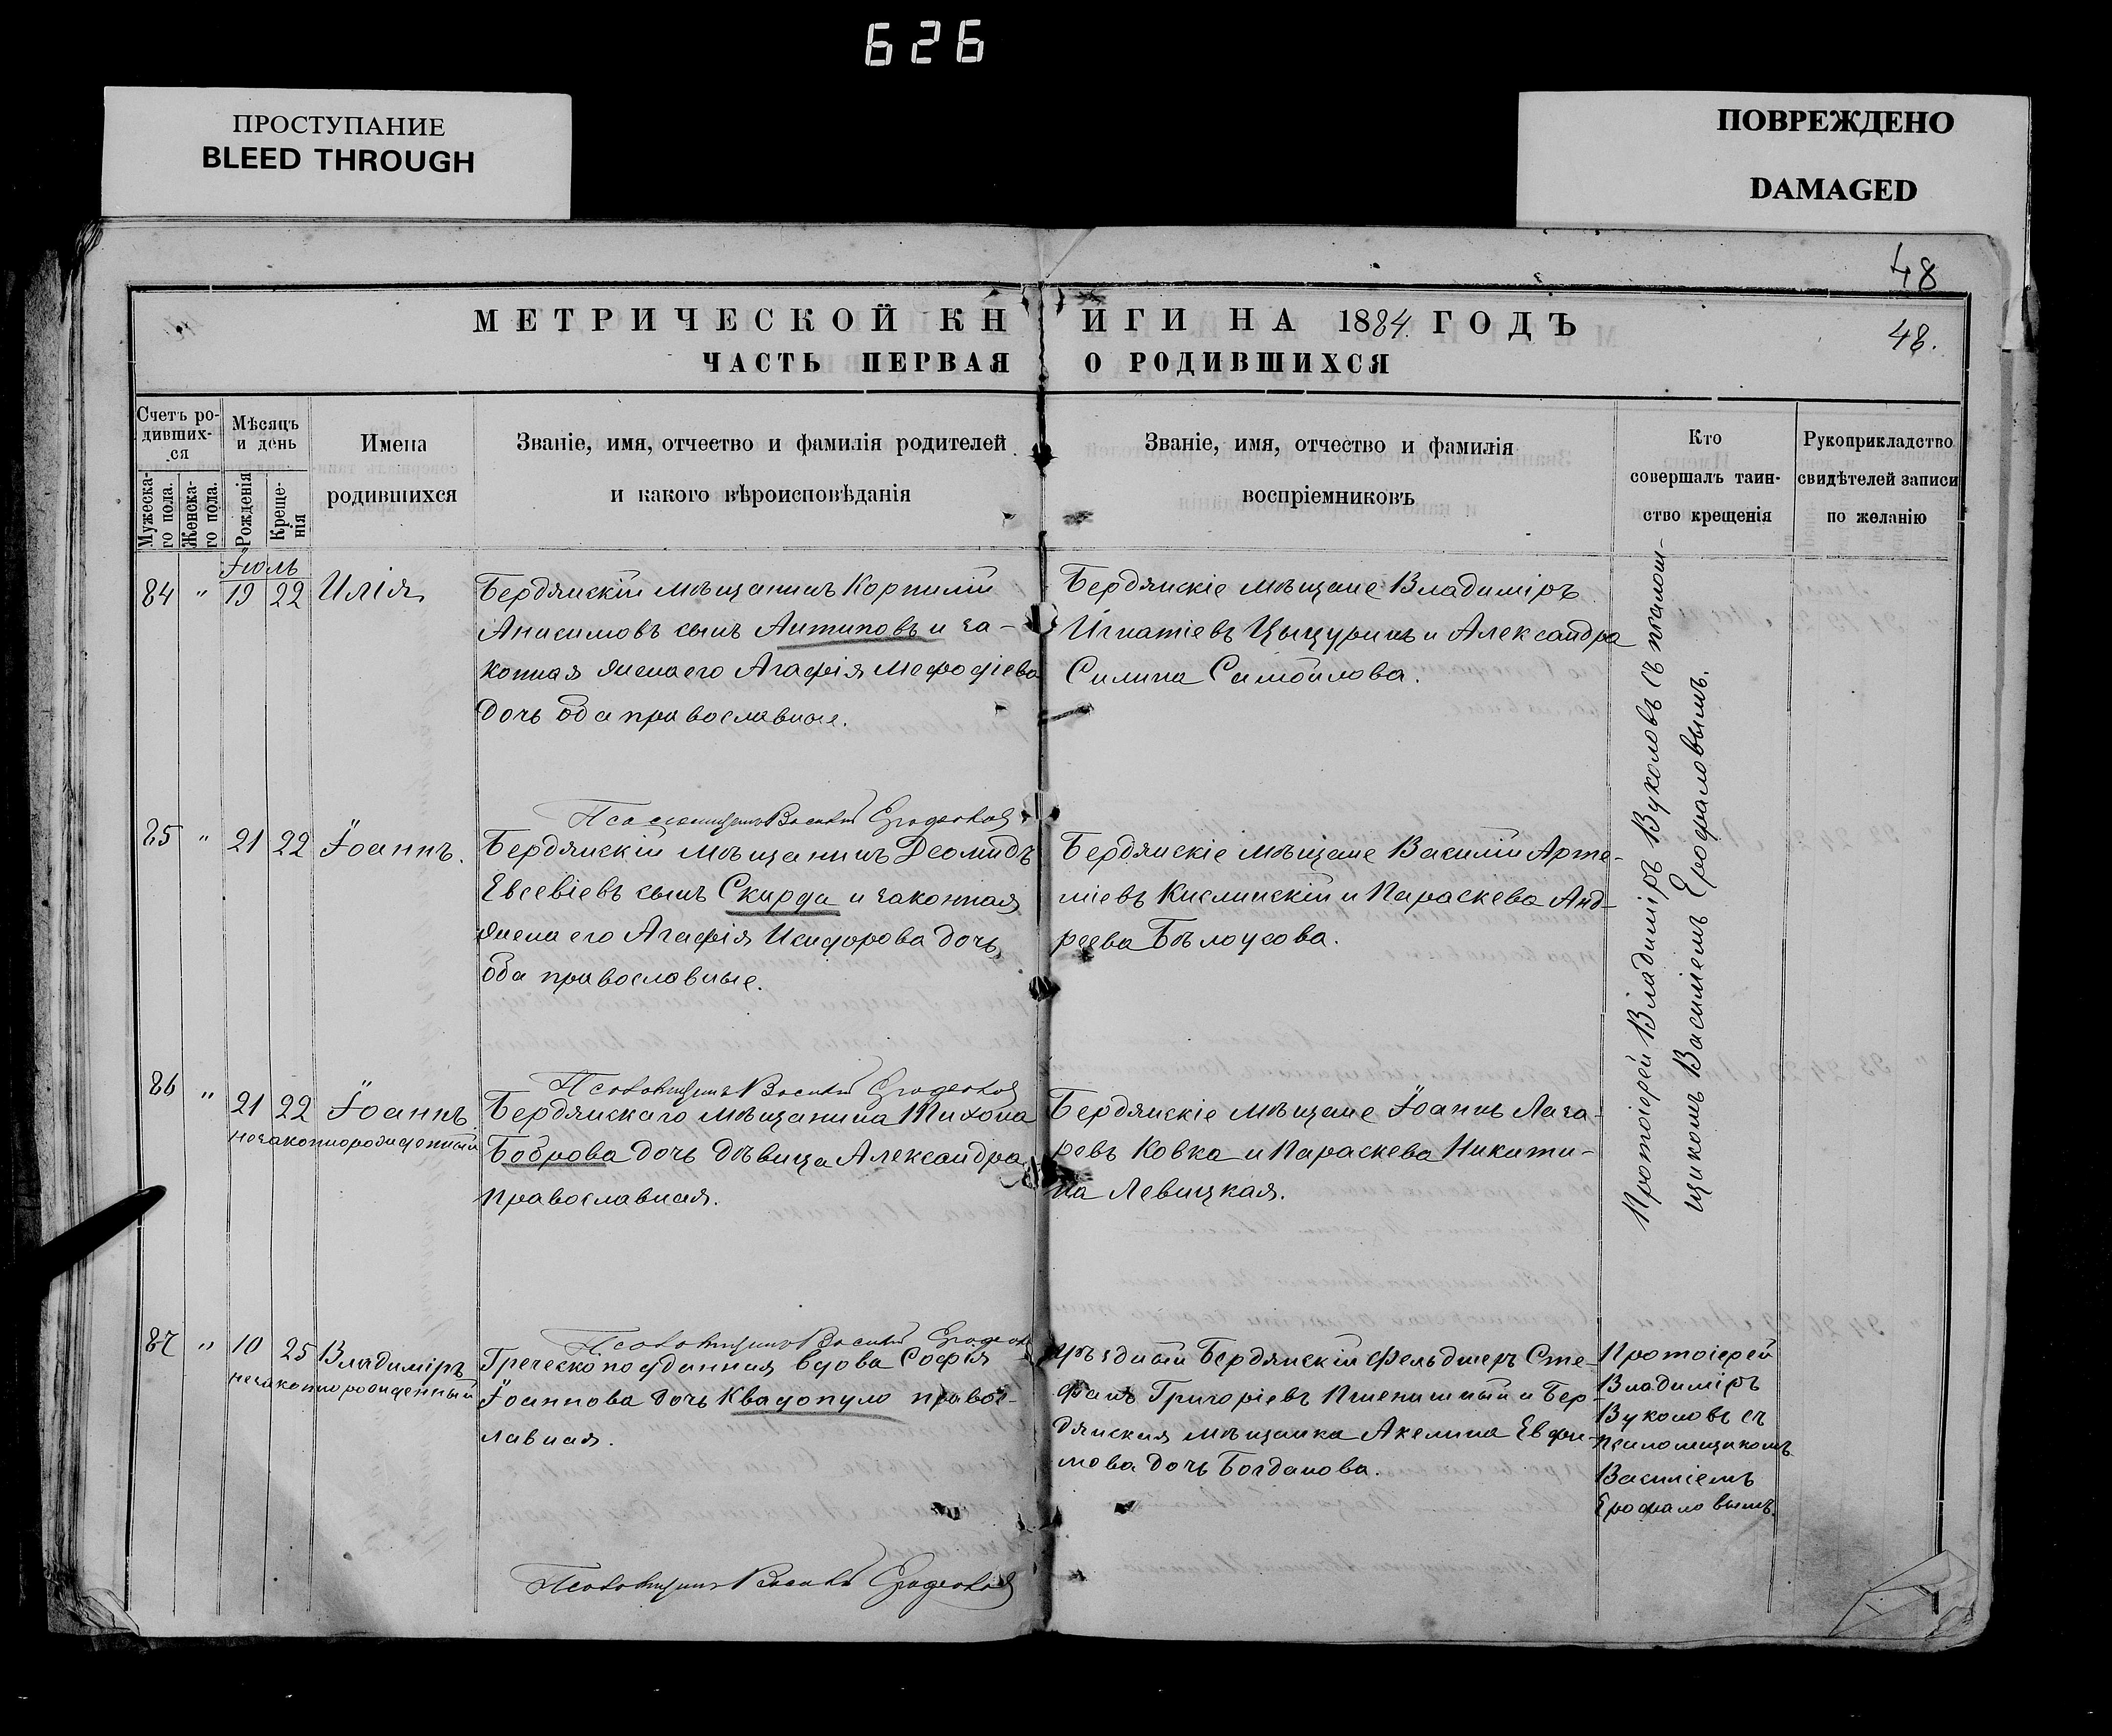 626
ПРОСТУПАНИЕ
BLEED THROUGH
ПОВРЕЖДЕНО
DAMAGED
48
МЕТРИЧЕСКОЙ КНИГИ НА 1884 ГОДЪ
48.
ЧАСТЬ ПЕРВАЯ О РОДИВШИХСЯ
Счетъ ро-
дивших-
ся
Мужеска-
го пола.
Женска-
го пола.
Мѣсяцъ
и день
Рожденія
Креще-
нія
Имена
родившихся
Званіе, имя, отчество и фамилія родителей
и какого вѣроисповѣданія
Званіе, имя, отчество и фамилія
воспріемниковъ
Кто
совершалъ таин-
ство крещенія
Рукоприкладство
свидѣтелей записи
по желанію
Іюль
84 " 19 22 Илія
Бердянскій мѣщанинъ Корнилій
Анисимовъ сынъ Антиповъ и за-
конная жена его Агафія Мефодіева
дочь оба православные.
Бердянскіе мѣщане Владиміръ
Игнатіевъ Цыцуринъ и Александра
Силина Самойлова.
Протоіерей Владиміръ Вуколовъ съ псалом-
щикомъ Василіемъ Ерофаловымъ.
Псаломщикъ Василій
85 " 21 22 Іоаннъ.
Бердянскій мѣщанинъ Деомидъ
Евсевіевъ сынъ Скирда и законная
жена его Агафія Исидорова дочь,
оба православные.
Бердянскіе мѣщане Василій Арте-
міевъ Кислинскій и Параскева Анд-
реева Бѣлоусова.
Псаломщикъ Василій
86 " 21 22 Іоаннъ
незаконнорожденный
Бердянскаго мѣщанина Тихона
Боброва дочь дѣвица Александра
православная.
Бердянскіе мѣщане Іоаннъ Лаза-
ревъ Ковка и Параскева Никити-
на Левицкая.
Псаломщикъ Василій
87 " 10 25 Владиміръ
незаконнорожденный
Греческоподданная вдова Софія
Іоаннова дочь Квадопуло правос-
лавная.
уѣздный Бердянскій Фельдшеръ Сте-
фанъ Григоріевъ Пшеничный и Бер-
дянская мѣщанка Акелина Евфи-
мова дочь Богданова.
Протоіерей
Владиміръ
Вуколовъ съ
псаломщикомъ
Василіемъ
Ерофаловымъ.
Псаломщикъ Василій